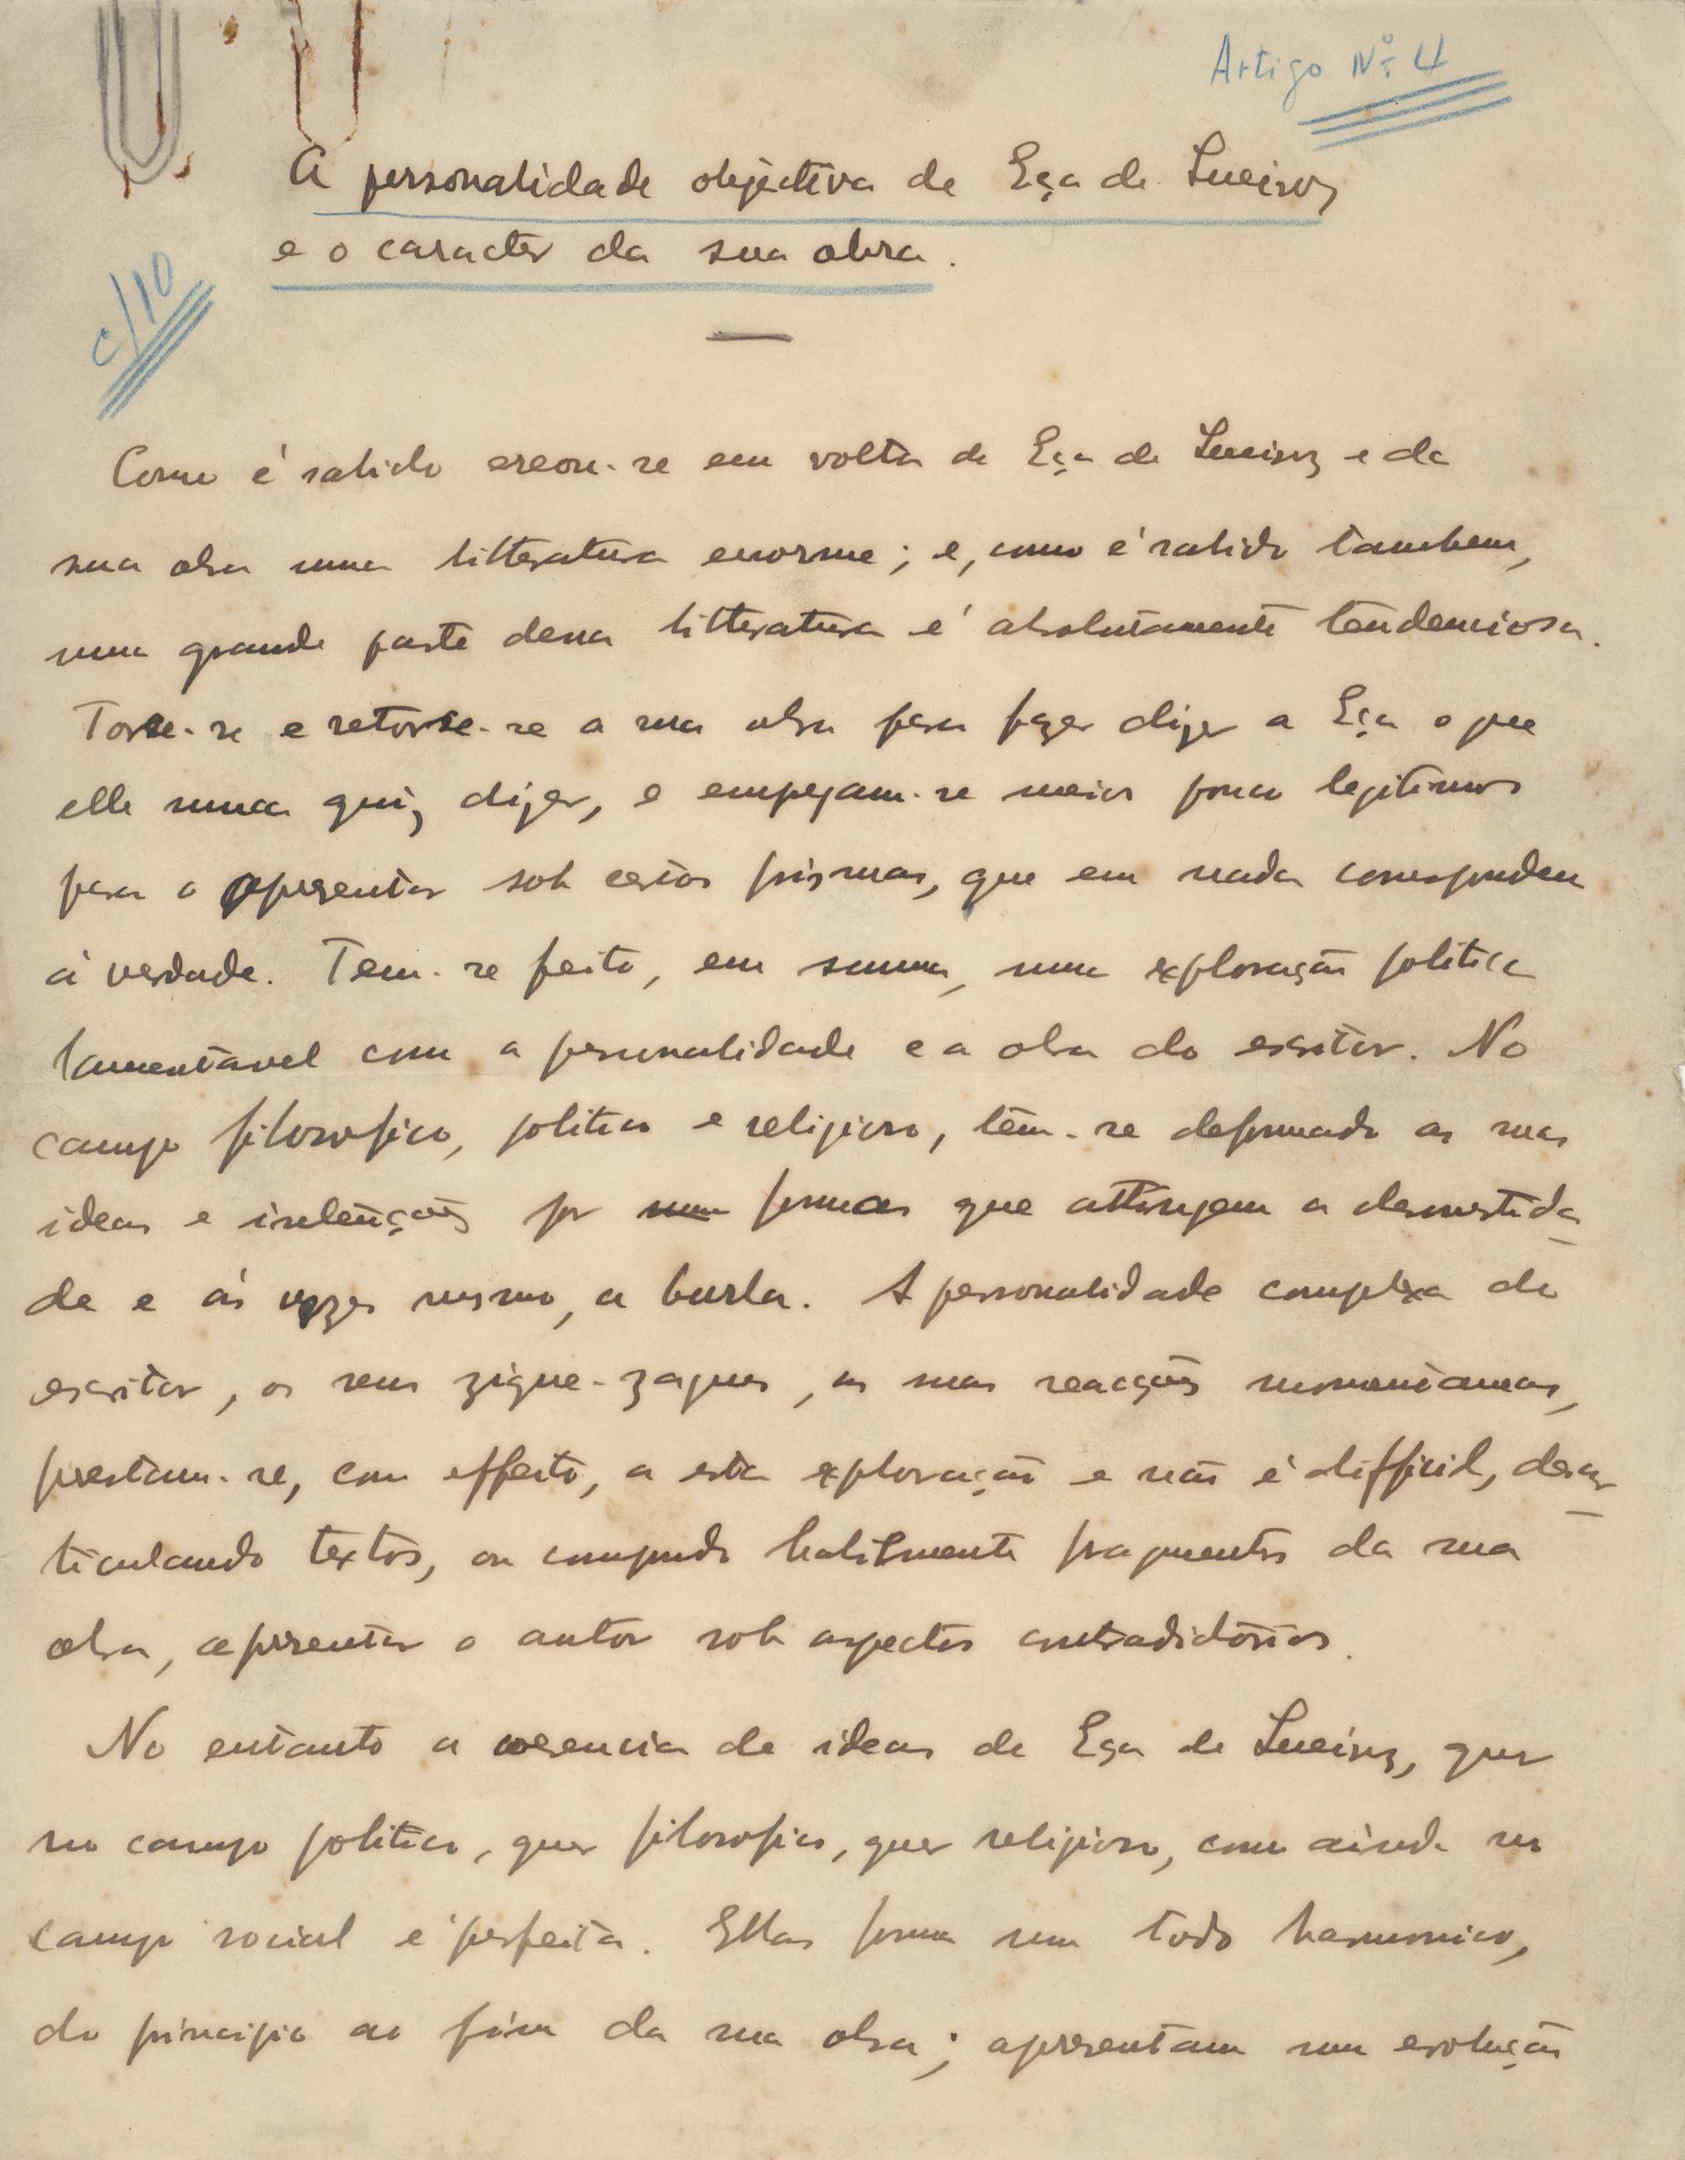 Artigo Nº 4
A personalidade objectiva de Eça de Queiroz
e o caracter da sua obra.
c/10
Como é sabido creou-se em volta de Eça de Queiroz e da
sua obra uma litteratura enorme; e, como é sabido tambem,
uma grande parte dessa litteratura é absolutamente tendenciosa.
Torce-se e retorce-se a sua obra para fazer dizer a Eça o que
elle nunca quiz dizer, e empregam-se meios pouco legitimos
para o apresentar sob certos prismas, que em nada correspondem
á verdade. Tem-se feito, em summa, uma exploração politica
lamentavel com a personalidade e a obra do escritor. No
campo filosofico, politico e religioso, têm-se deformado as suas
ideas e intenções por formas que attingem a desonestida-
de e ás vezes mesmo, a burla. A personalidade complexa do
escritor, os seus zigue-zagues, as suas reacções momentaneas,
prestam-se, com effeito, a esta exploração e não é difficil, desar-
ticulando textos, ou compondo habilmente fragmentos da sua
obra, apresentar o autor sob aspectos contradictorios.
No entanto a coerencia de ideas de Eça de Queiroz, quer
no campo politico, quer filosofico, quer religioso, como ainda no
campo social é perfeita. Ellas forma um todo harmonico,
do principio ao fim da sua obra; apresentam uma evolução